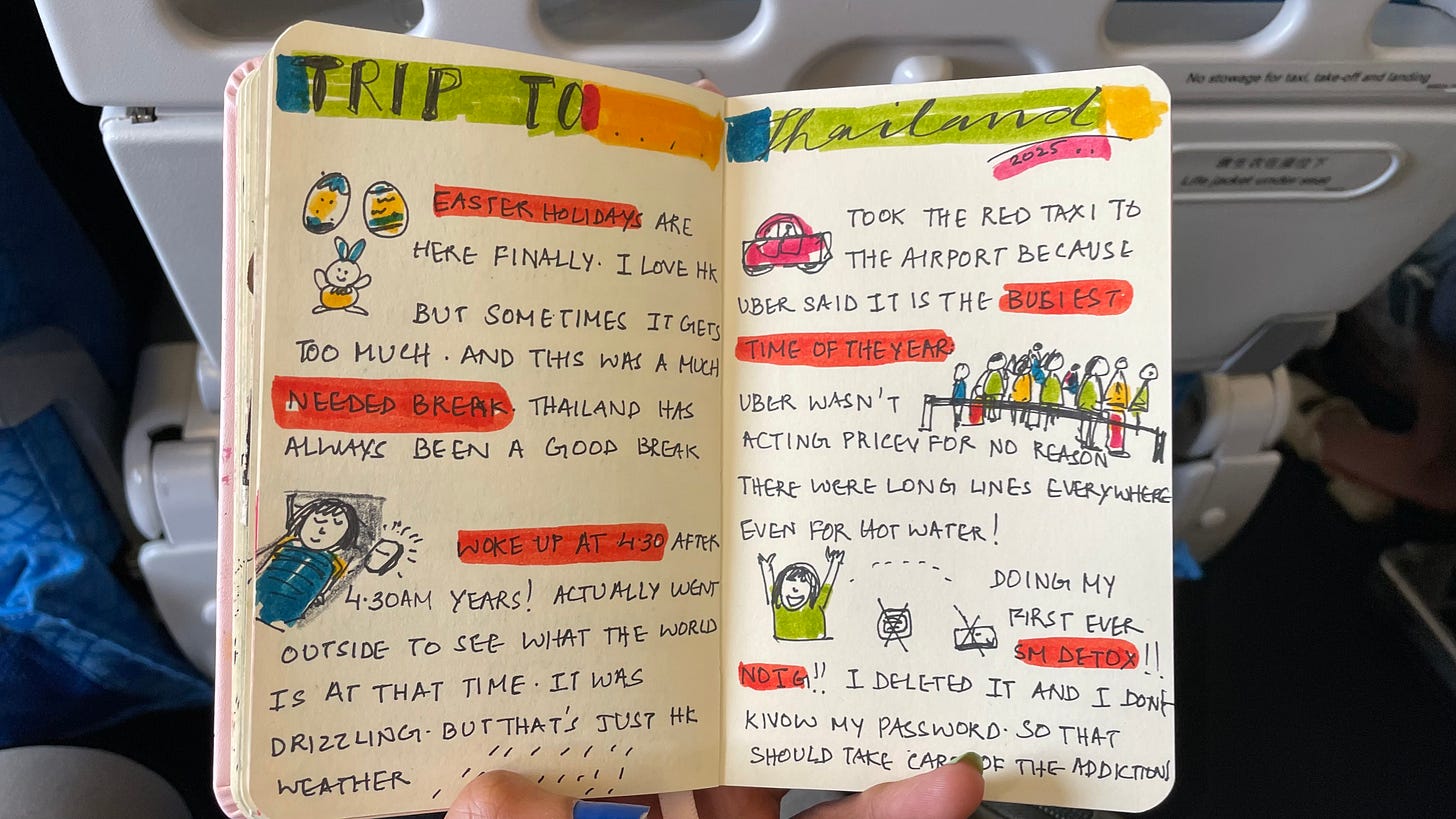 TRIP TO....
EASTER HOLIDAYS ARE
HERE FINALLY. I LOVE HK
BUT SOMETIMES IT GETS
TOO MUCH. AND THIS WAS A MUCH
NEEDED BREAK. THAILAND HAS
ALWAYS BEEN A GOOD BREAK
WOKE UP AT 4:30 AFTER
4:30AM YEARS! ACTUALLY WENT
OUTSIDE TO SEE WHAT THE WORLD
IS AT THAT TIME. IT WAS
DRIZZLING. BUT THAT'S JUST HK
WEATHER
Thailand
2025..
TOOK THE RED TAXI TO
THE AIRPORT BECAUSE
UBER SAID IT IS THE BUSIEST
TIME OF THE YEAR.
UBER WASN'T
ACTING PRICEY FOR NO REASON
THERE WERE LONG LINES EVERYWHERE
EVEN FOR HOT WATER!
DOING MY
FIRST EVER
SM DETOX!!
NO IG!! I DELETED IT AND I DONT
KNOW MY PASSWORD. SO THAT
SHOULD TAKE CARE OF THE ADDICTIONS
No stowage for taxi, take-off and landing
救生衣在座位下
Life jacket under seat